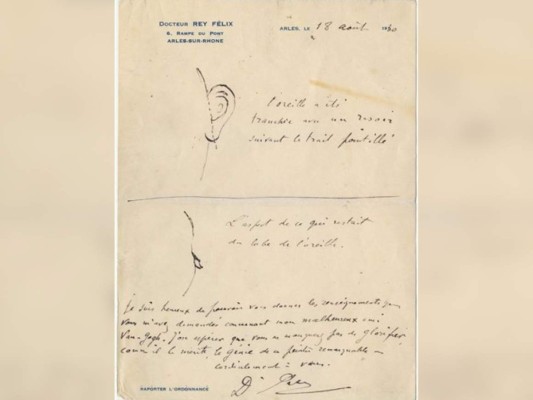 DOCTEUR REY FÉLIX
6, RAMPE DU PONT
ARLES-SUR-RHONE
ARLES, LE 18 août 1930
L'oreille a été
tranchée avec un rasoir
suivant le trait pointillé
L'aspect de ce qui restait
du lobe de l'oreille.
Je suis heureux de pouvoir vous donner les renseignements que
vous m'avez demandés concernant mon malheureux ami
Van-Gogh. J'ose espérer que vous ne manquerez pas de glorifier
comme il le mérite le génie de ce peintre remarquable —
cordialement à vous.
Dr Rey
RAPORTER L'ORDONNANCE